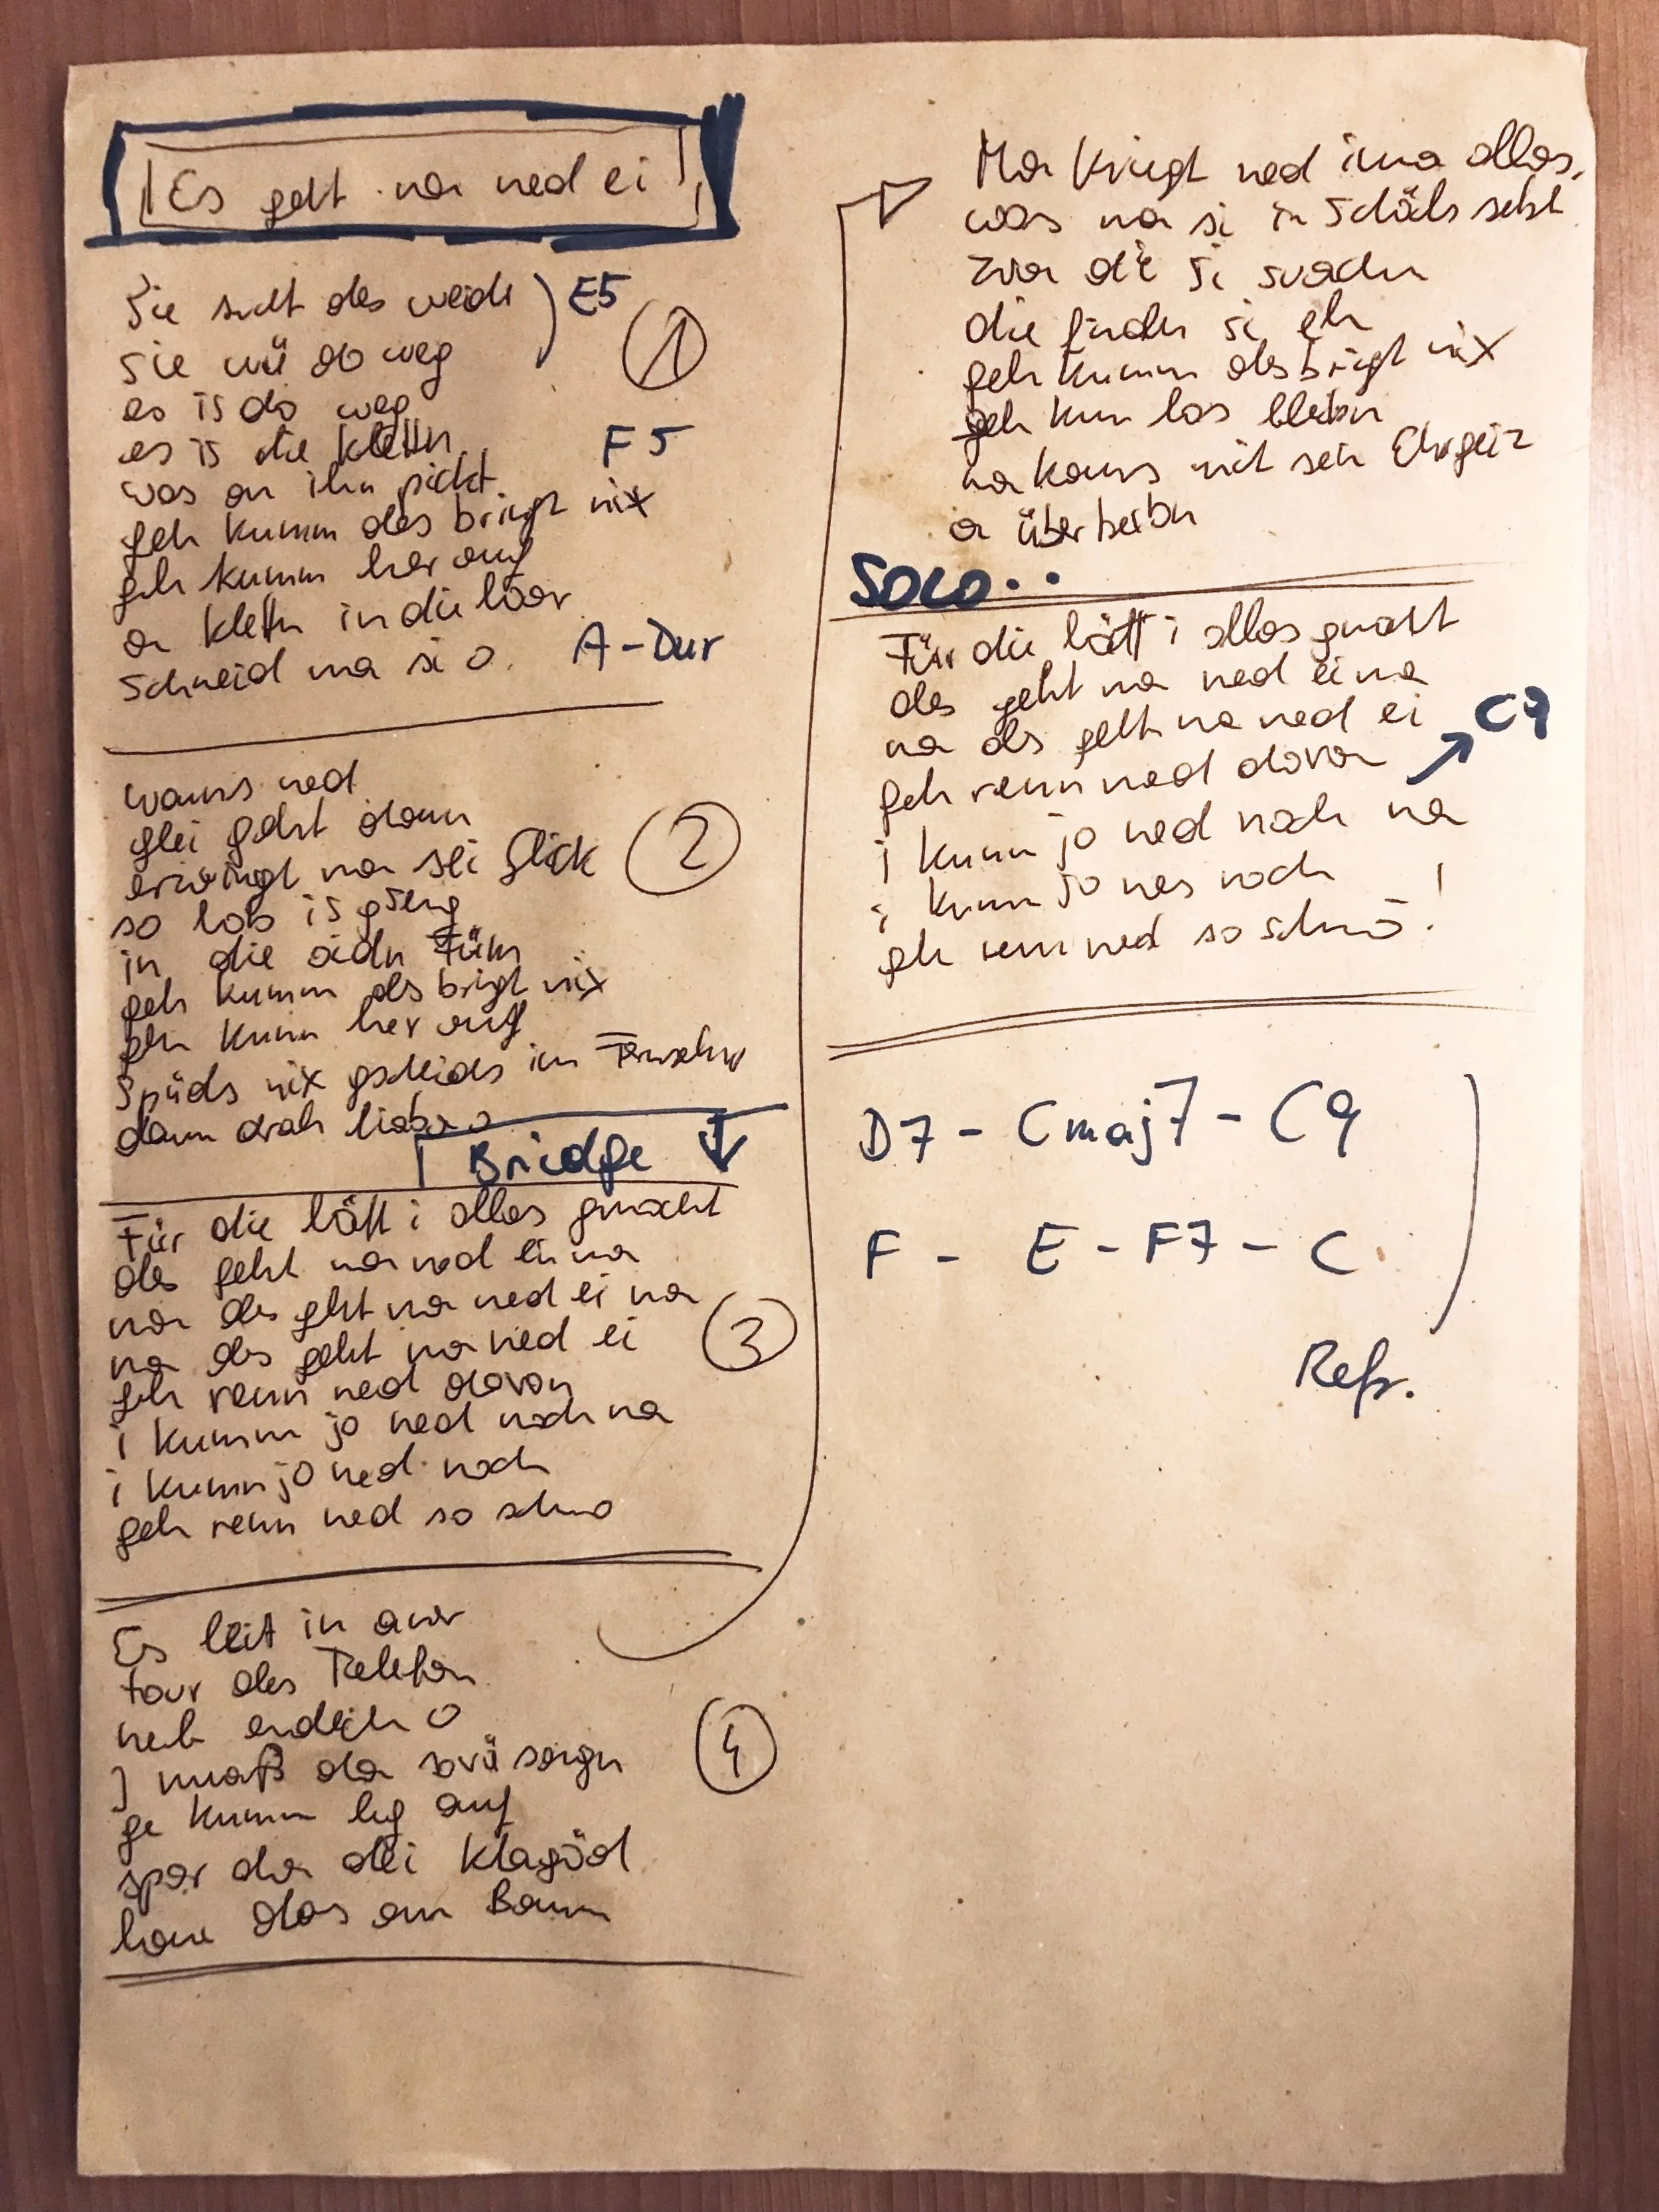 Es geht ma ned ei
Sie sucht des weide E5
sie wü ob weg 1
es is do weg
es is die Klettn F5
was an ihm pickt
geh kumm des bringt nix
geh kumm her auf
a Klettn in die Hoor
schneid ma si o. A-Dur
wauns ned
glei geht dann
erzwingt ma sei Glick 2
so lob is gseng
in die oidn Füm
geh kumm des bringt nix
geh kumm her auf
Spüds nix gscheids im Fernsehn
dann drah liaba o
Bridge
Für die hätt i olles gmocht
des geht ma ned ei na
na des geht ma ned ei na 3
na des geht ma ned ei
geh renn ned davon
i kumm jo ned noch na
i kumm jo ned noch
geh renn ned so schnö
Es leit in aner
tour des Telefon
heb endlich o
I muaß da sovü sogn 4
ge kumm leg auf
spar da dei Klagöd
hau das am Baum
Ma kriegt ned ima olles,
was ma si in Schädl setzt
zwa die si suachn
die findn si eh
geh kumm des bringt nix
geh kum los bleibn
ma kanns mit sein Ehrgeiz
a überteibn
SOLO..
Für die hätt i olles gmocht
des geht ma ned ei na
na des geht ma ned ei C7
geh renn ned davon
i kumm jo ned noch na
i kumm jo nes noch
geh renn ned so schnö!
D7 - Cmaj7 - C9
F - E - F7 - C
Refr.